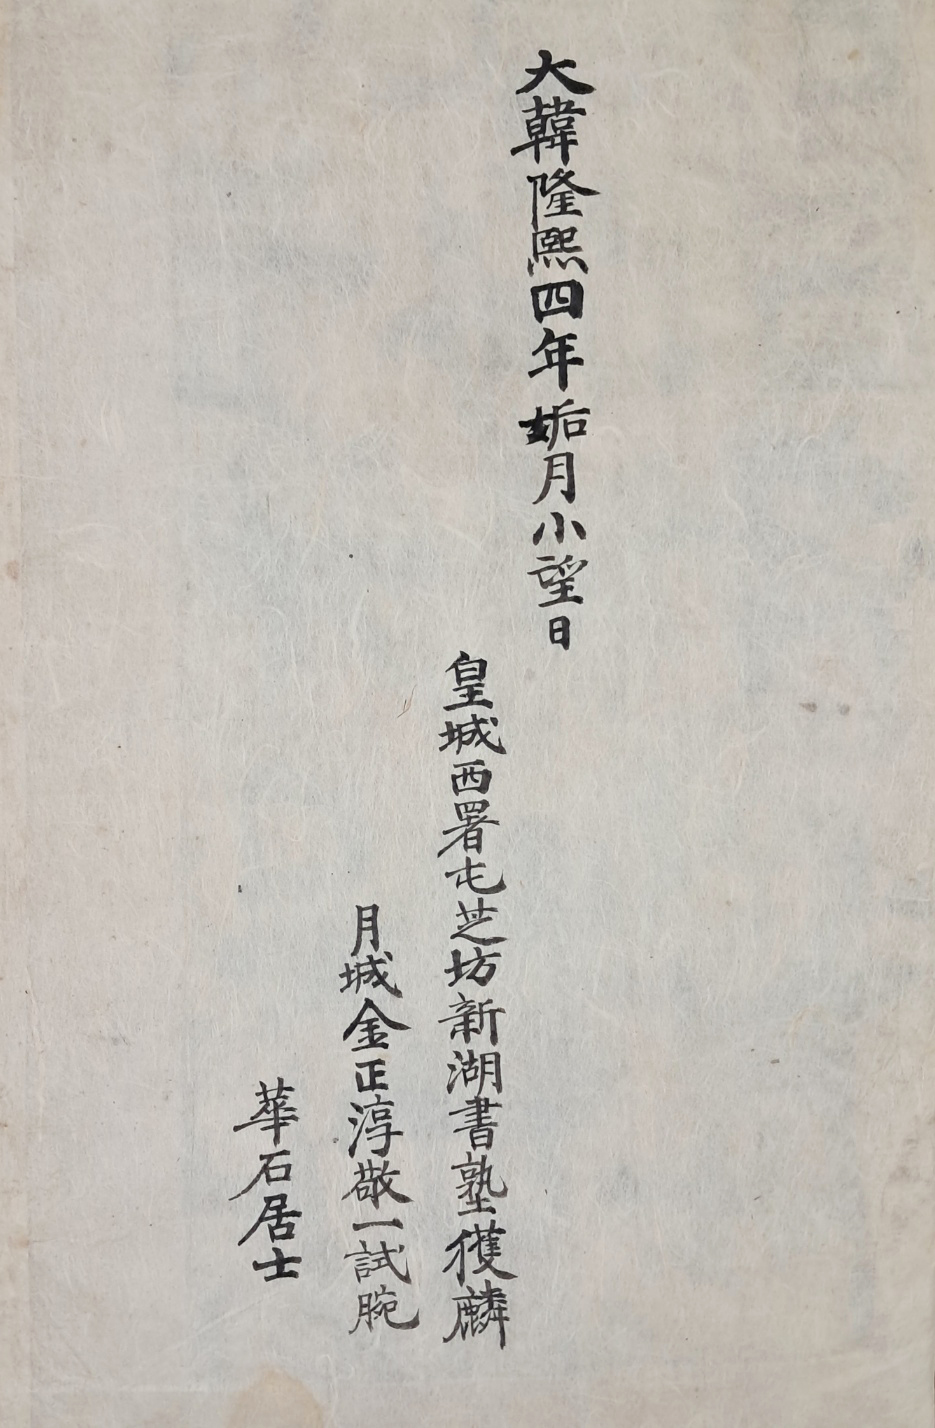 大韓隆熙四年姤月小望日
皇城西署屯芝坊新湖書塾獲麟
月城金正淳敬一試腕
華石居士